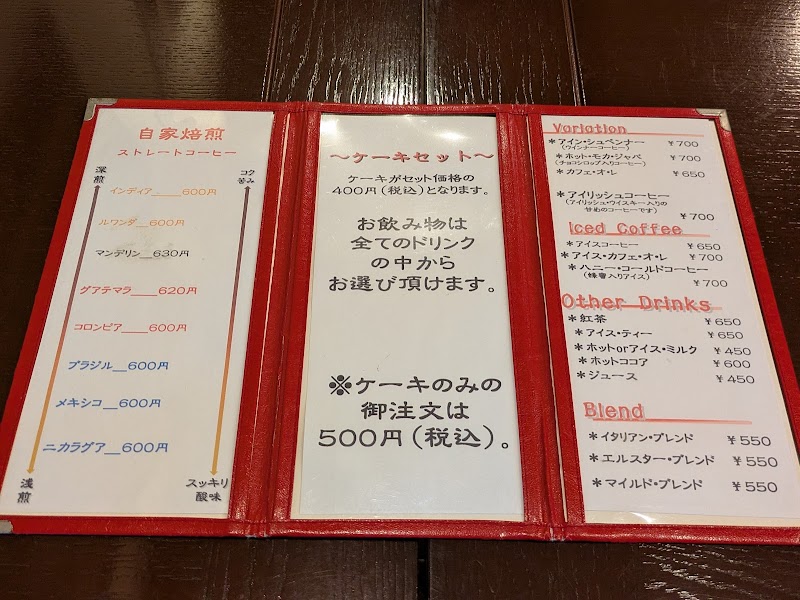 自家焙煎
ストレートコーヒー
深煎
コク
苦み
インディア____600円
ルワンダ__600円
マンデリン__630円
グアテマラ___620円
コロンビア___600円
ブラジル__600円
メキシコ__600円
ニカラグア__600円
浅煎
スッキリ
酸味
～ケーキセット～
ケーキがセット価格の
400円(税込)となります。
お飲み物は
全てのドリンク
の中から
お選び頂けます。
※ケーキのみの
御注文は
500円(税込)。
Variation
＊アイン・シュペンナー ￥700
(ウインナーコーヒー)
＊ホット・モカ・ジャバ ￥700
(チョコシロップ入りコーヒー)
＊カフェ・オ・レ ￥650
＊アイリッシュコーヒー
(アイリッシュ・ウイスキー入りの
甘めのコーヒーです)
￥700
Iced Coffee
＊アイスコーヒー ￥650
＊アイス・カフェ・オ・レ ￥700
＊ハニー・コールドコーヒー
(蜂蜜入りアイス) ￥700
Other Drinks
＊紅茶 ￥650
＊アイス・ティー ￥650
＊ホットorアイス・ミルク ￥450
＊ホットココア ￥600
＊ジュース ￥450
Blend
＊イタリアン・ブレンド ￥550
＊エルスター・ブレンド ￥550
＊マイルド・ブレンド ￥550